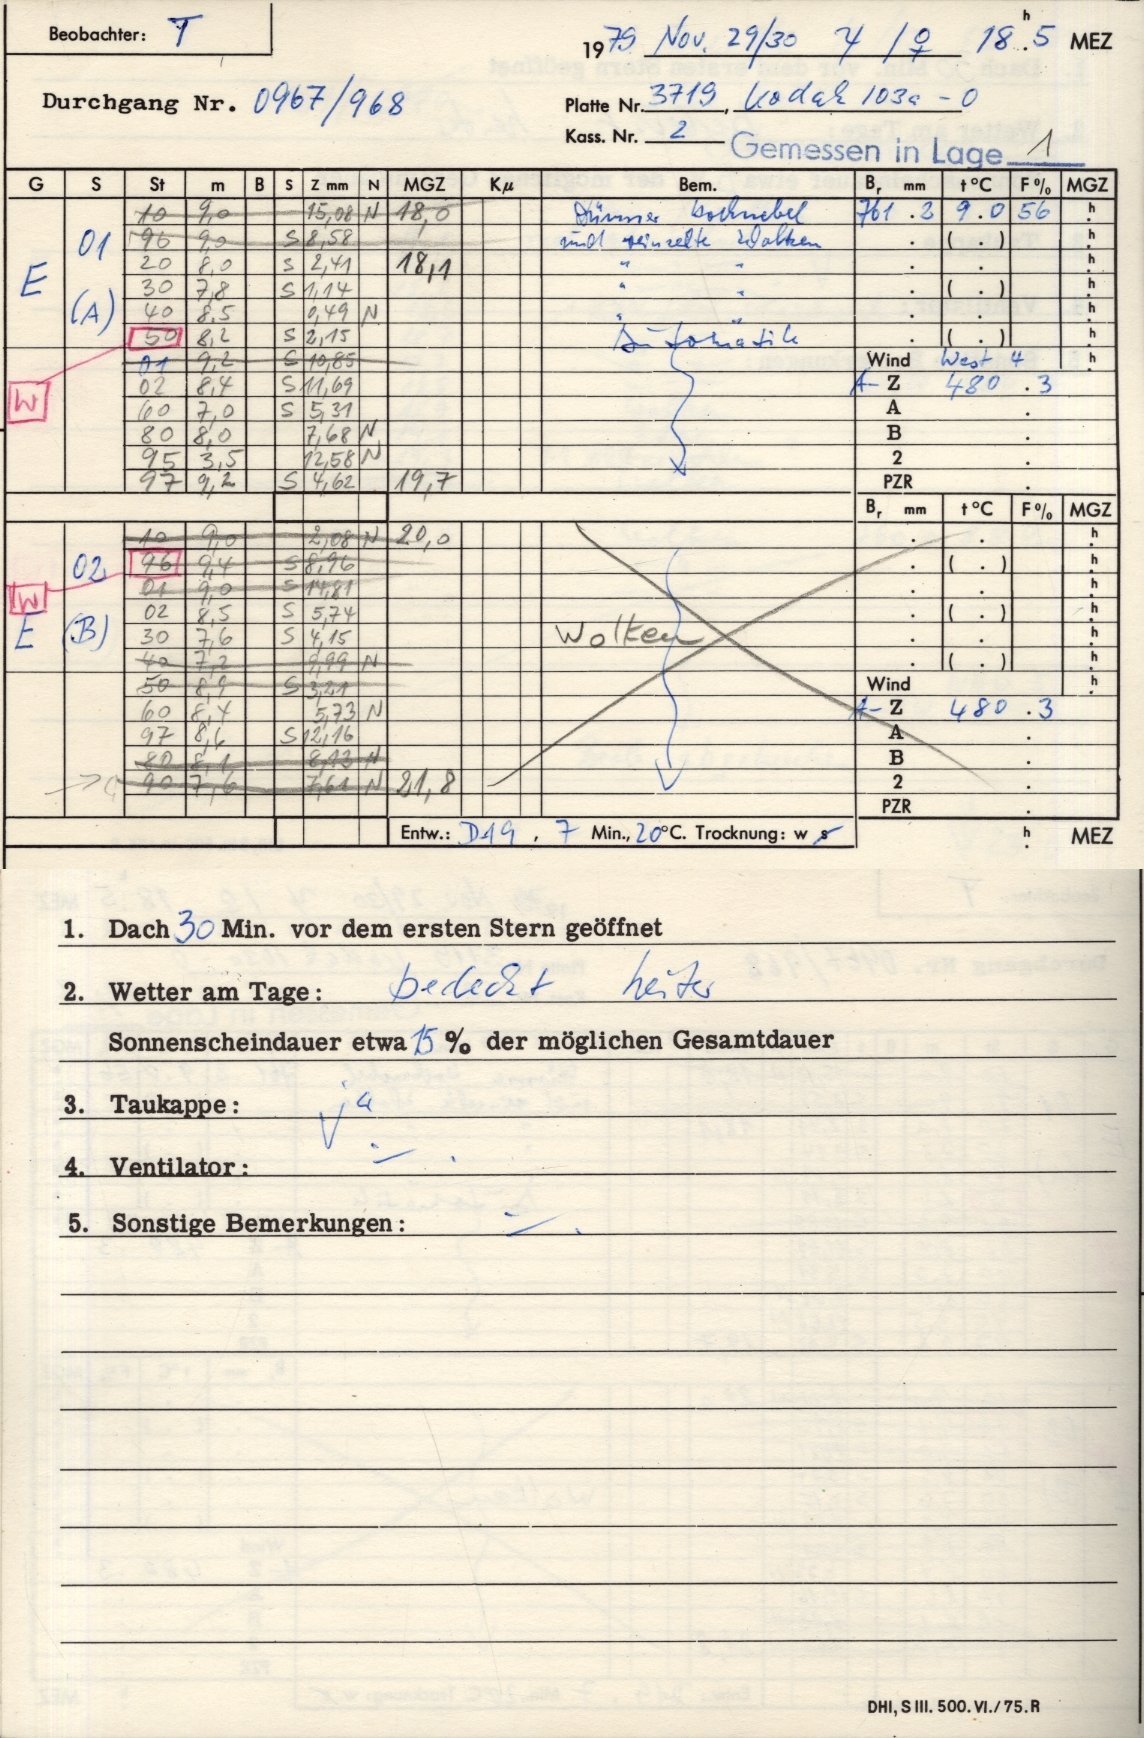 Beobachter: T
1979 Nov. 29/30 4 / ♀ 18ʰ.5 MEZ
Durchgang Nr. 0967/968
Platte Nr. 3719, Kodak 103a - O
Kass. Nr. 2
Gemessen in Lage 1
G S St m B S Z mm N MGZ Kμ Bem. Bᵣ mm t°C F% MGZ
10 9,0 15,08 N 18,0 Dünner Hochnebel 761.2 9.0 56 h
01 96 9,0 S 8,58 und vereinzelte Wolken . ( . ) h
20 8,0 S 2,41 18,1 " " . . h
E 30 7,8 S 1,14 " " . ( . ) h
(A) 40 8,5 0,49 N " " . . h
50 8,2 S 2,15 Automatik . ( . ) h
01 9,2 S 10,85 Wind West 4 h
W 02 8,4 S 11,69 A- Z 480.3
60 7,0 S 5,31 A .
80 8,0 7,68 N B .
95 3,5 12,58 N 2 .
97 9,2 S 4,62 19,7 PZR .
Bᵣ mm t°C F% MGZ
10 9,0 2,08 N 20,0 . . h
02 96 9,4 S 8,96 . ( . ) h
W 01 9,0 S 14,81 . . h
02 8,5 S 5,74 . ( . ) h
E (B) 30 7,6 S 4,15 Wolken . . h
40 7,2 9,99 N . ( . ) h
50 8,9 S 3,21 Wind h
60 8,4 5,73 N A- Z 480.3
97 8,6 S 12,16 A .
80 8,1 8,13 N B .
90 7,6 7,61 N 21,8 2 .
PZR .
Entw.: D19, 7 Min., 20°C. Trocknung: w s h. MEZ
1. Dach 30 Min. vor dem ersten Stern geöffnet
2. Wetter am Tage: bedeckt heiter
Sonnenscheindauer etwa 15 % der möglichen Gesamtdauer
3. Taukappe: ja
4. Ventilator: — .
5. Sonstige Bemerkungen: — .
DHI, S III. 500. VI./75. R